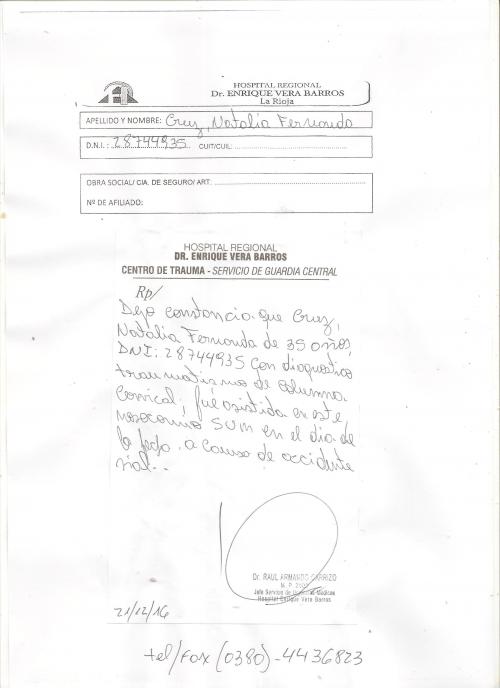 HOSPITAL REGIONAL
Dr. ENRIQUE VERA BARROS
La Rioja
APELLIDO Y NOMBRE: Cruz, Natalia Fernanda
D.N.I. : 28744935 CUIT/CUIL:
OBRA SOCIAL/ CIA. DE SEGURO/ ART:
Nº DE AFILIADO:
HOSPITAL REGIONAL
DR. ENRIQUE VERA BARROS
CENTRO DE TRAUMA - SERVICIO DE GUARDIA CENTRAL
Rp/
Dejo constancia que Cruz,
Natalia Fernanda de 35 años,
DNI: 28744935 con diagnostico
traumatismo de columna
Cervical, fue asistida en este
nosocomio SUM en el dia de
la fecha a causa de accidente
vial.
Dr. RAUL ARMANDO CARRIZO
M. P.
Jefe Servicio de Médicas
Hospital Enrique Vera Barros
21/12/16
tel/fax (0380)-4436823